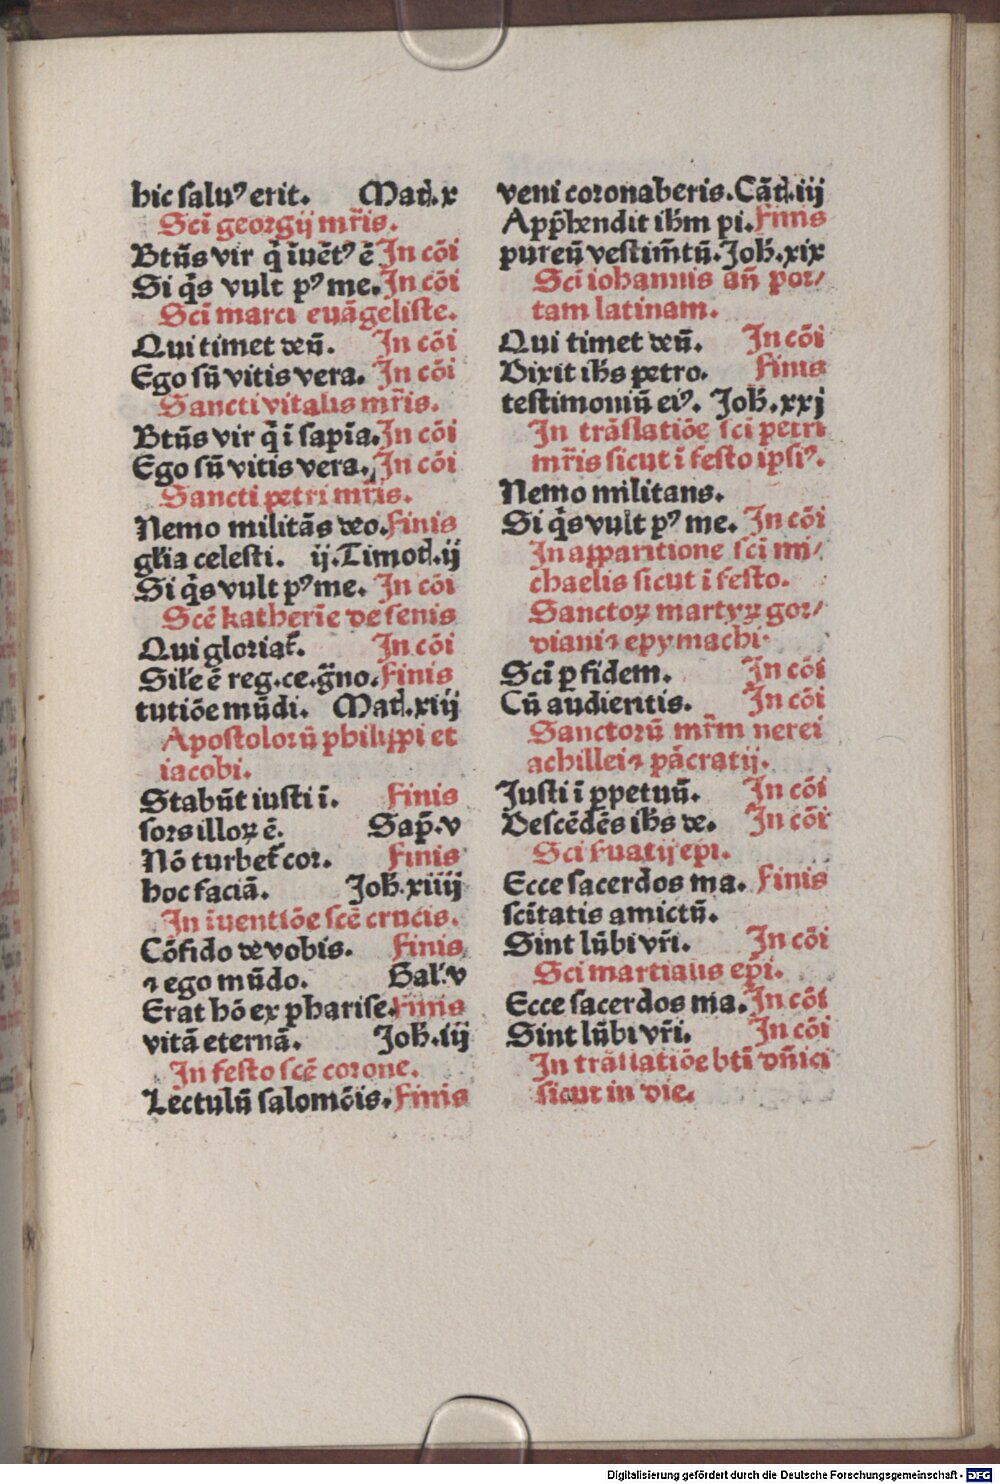 hic saluꝰ erit. Mad.x
Scĩ georgij mr̃is.
Btũs vir q̃ ĩuẽtꝰ ẽ In cõi
Si q̃s vult pꝰ me. In cõi
Scĩ marci euãgeliste.
Qui timet deũ. In cõi
Ego sũ vitis vera. In cõi
Sancti vitalis mr̃is.
Btũs vir q̃ ĩ sapĩa. In cõi
Ego sũ vitis vera. In cõi
Sancti petri mr̃is.
Nemo militãs deo. Finis
gl̃ia celesti. ij.Timod.ij
Si q̃s vult pꝰ me. In cõi
Scẽ katherĩe de senis
Qui gloriat̃. In cõi
Sil̃e ẽ reg.ce.g̃no. Finis
tutiõe mũdi. Mad.xiij
Apostolorũ philippi et
iacobi.
Stabũt iusti ĩ. Finis
sors illoꝝ ẽ. Sap̃.v
Nõ turbet̃ cor. Finis
hoc faciã. Joh̃.xiiij
In ĩuentiõe scẽ crucis.
Cõfido de vobis. Finis
⁊ ego mũdo. Gal̃.v
Erat hõ ex pharise. Finis
vitã eternã. Joh̃.iij
In festo scẽ corone.
Lectulũ salomõis. Finis
veni coronaberis. Cãt̃.iij
App̃hendit ih̃m pi. Finis
pureũ vestim̃tũ. Joh̃.xix
Scĩ iohannis añ por/
tam latinam.
Qui timet deũ. In cõi
Dixit ih̃s petro. Finis
testimoniũ eiꝰ. Joh̃.xxj
In trãslatiõe scĩ petri
mr̃is sicut ĩ festo ipsiꝰ.
Nemo militans.
Si q̃s vult pꝰ me. In cõi
In apparitione scĩ mi/
chaelis sicut ĩ festo.
Sanctoꝝ martyꝝ gor/
diani ⁊ epymachi.
Scĩ ꝑ fidem. In cõi
Cũ audieritis. In cõi
Sanctorũ mr̃m nerei
achillei ⁊ pãcratij.
Justi ĩ ꝑpetuũ. In cõi
Descẽdẽs ih̃s de. In cõi
Sci suatij ep̃i.
Ecce sacerdos ma. Finis
scĩtatis amictũ.
Sint lũbi vr̃i. In cõi
Sci martialis ep̃i.
Ecce sacerdos ma. In cõi
Sint lũbi vr̃i. In cõi
In trãslatiõe btĩ dñici
sicut in die.
Digitalisierung gefördert durch die Deutsche Forschungsgemeinschaft - DFG